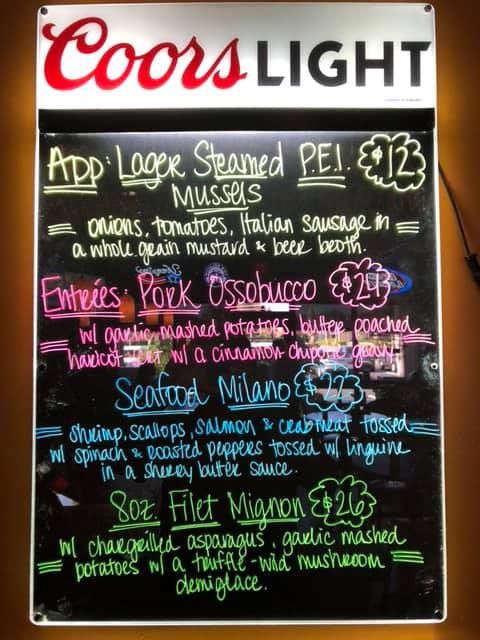 Coors LIGHT
App: Lager Steamed P.E.I. $12
Mussels
onions, tomatoes, Italian sausage in
a whole grain mustard & beer broth.
Entrées: Pork Ossobucco $24
w/ garlic mashed potatoes, butter poached
haricot vert w/ a cinnamon chipotle gravy
Seafood Milano $22
shrimp, scallops, salmon & crabmeat tossed
w/ spinach & roasted peppers tossed w/ linguine
in a sherry butter sauce.
8oz. Filet Mignon $26
w/ chargrilled asparagus, garlic mashed
potatoes w/ a truffle-wild mushroom
demiglace.